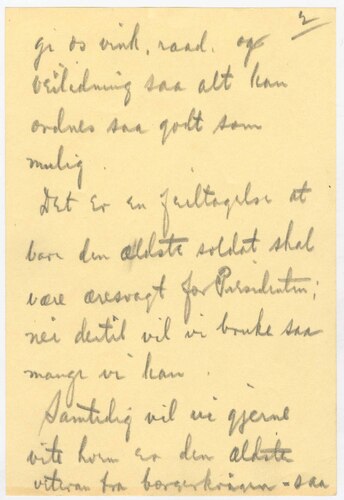 2
gi os vink, raad. og
veilidning saa alt kan
ordnes saa godt som
mulig.
Det er en feiltagelse at
bare den ældste soldat skal
være æresvagt for Præsidenten;
nei dertil vil vi bruke saa
mange vi kan.
Samtidig vil vi gjerne
vite hvem er den ældste
veteran fra borgerkrigen - saa